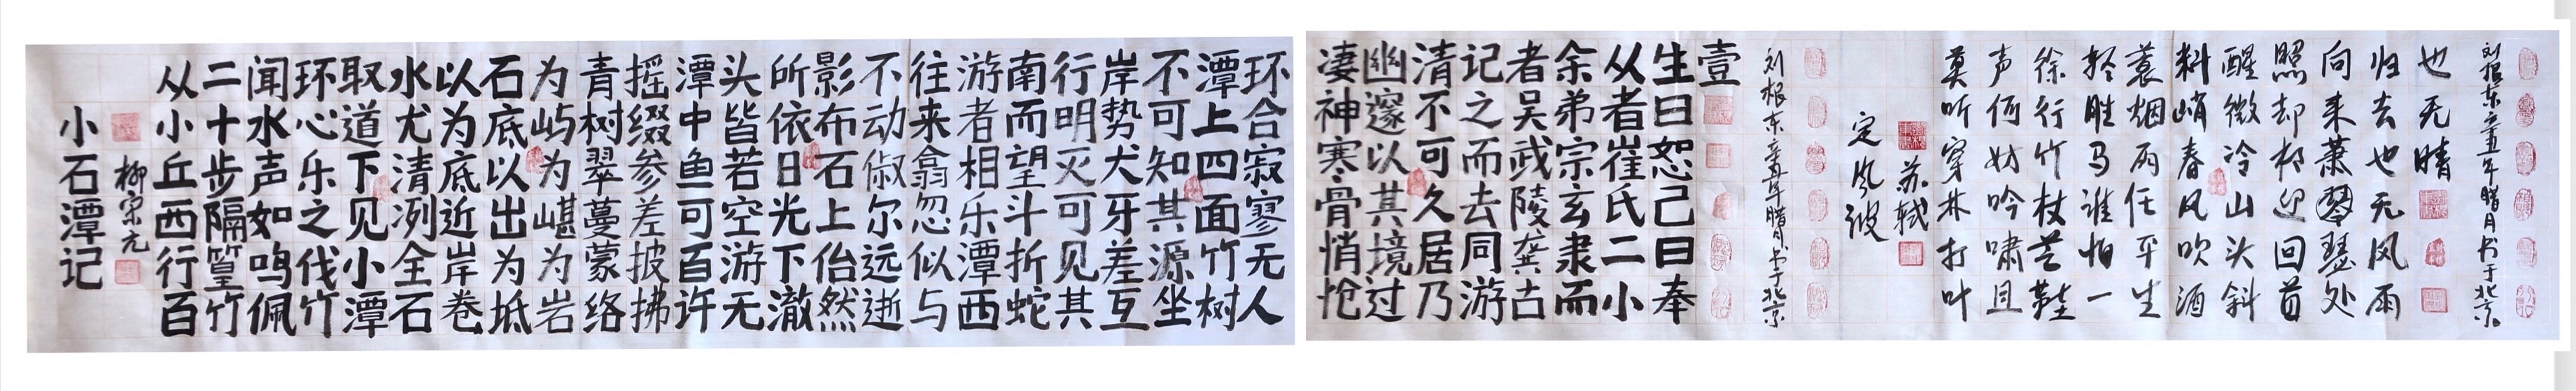 小石潭记
柳宗元
从小丘西行百
二十步隔篁竹
闻水声如鸣佩
环心乐之伐竹
取道下见小潭
水尤清冽全石
以为底近岸卷
石底以出为坻
为屿为嵁为岩
青树翠蔓蒙络
摇缀参差披拂
潭中鱼可百许
头皆若空游无
所依日光下澈
影布石上佁然
不动俶尔远逝
往来翕忽似与
游者相乐潭西
南而望斗折蛇
行明灭可见其
岸势犬牙差互
不可知其源坐
潭上四面竹树
环合寂寥无人
凄神寒骨悄怆
幽邃以其境过
清不可久居乃
记之而去同游
者吴武陵龚古
余弟宗玄隶而
从者崔氏二小
生曰恕己曰奉
壹
刘根东辛丑年腊月书于北京
定风波
苏轼
莫听穿林打叶
声何妨吟啸且
徐行竹杖芒鞋
轻胜马谁怕一
蓑烟雨任平生
料峭春风吹酒
醒微冷山头斜
照却相迎回首
向来萧琴瑟处
归去也无风雨
也无晴
刘根东辛丑年腊月书于北京